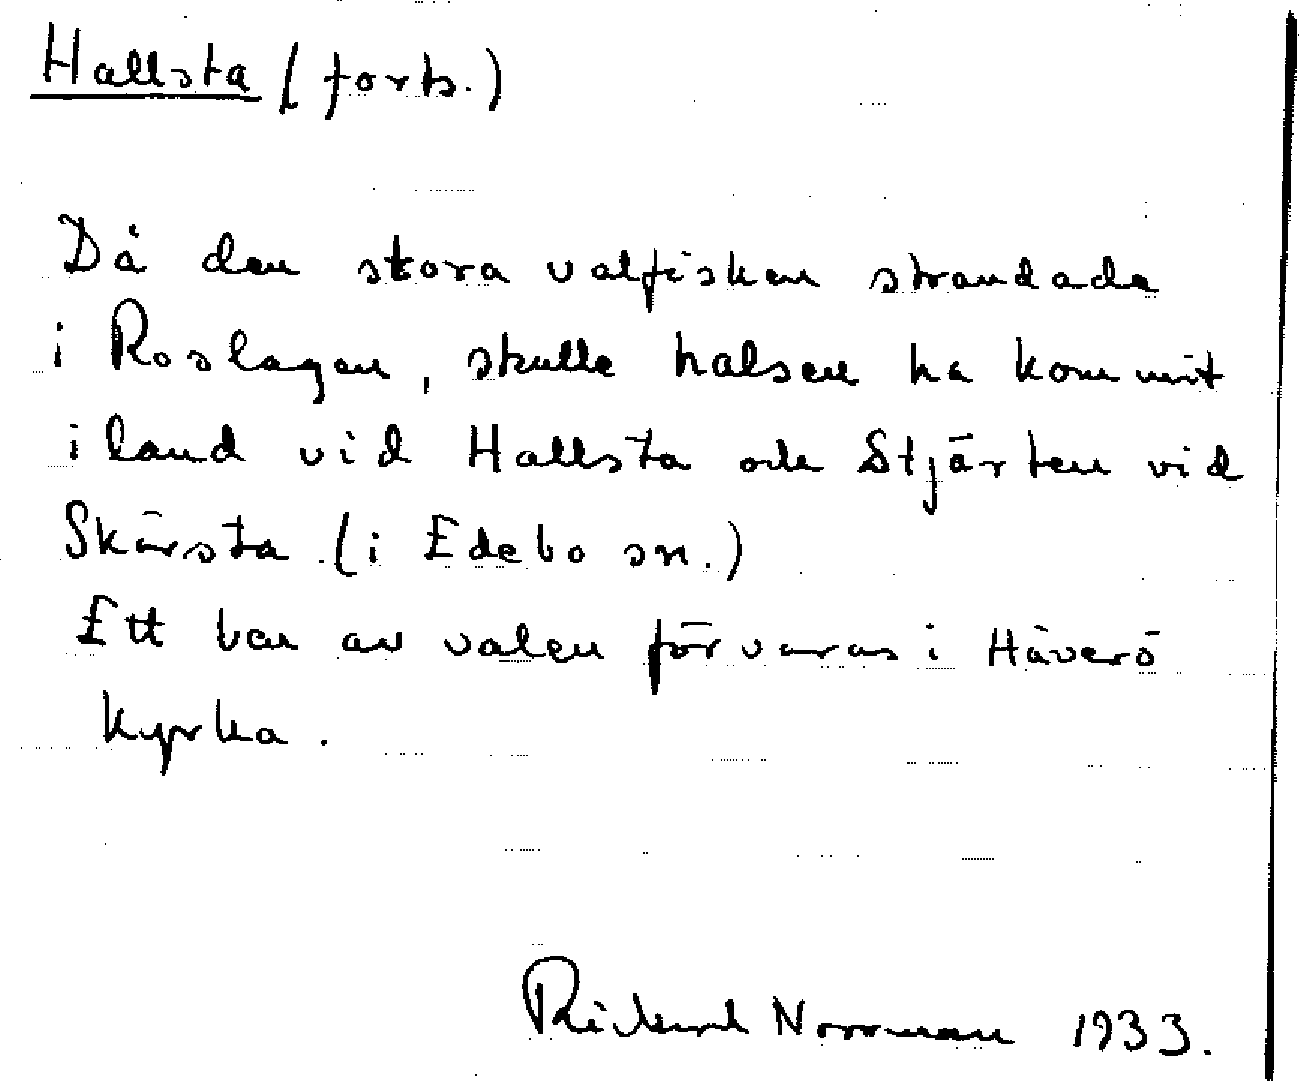 Hallsta (forts.)
Då den stora valfisken strandade
i Roslagen, skulle halsen ha kommit
i land vid Hallsta och Stjärten vid
Skärsta (i Edebo sn.)
Ett ben av valen förvaras i Häverö
kyrka.
Rikard Norrman 1933.